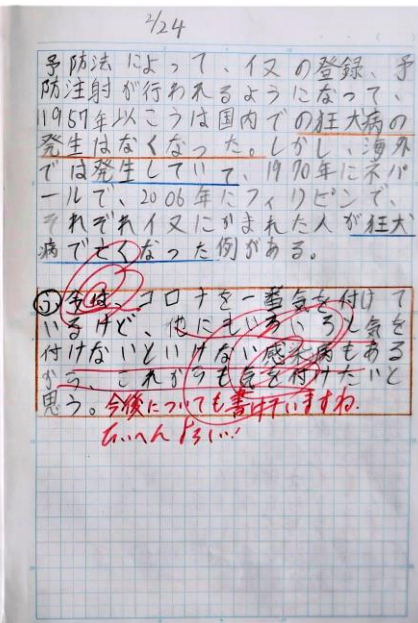 2/24
予防法によって、イヌの登録、予
防注射が行われるようになって、
1957年以こうは国内での狂犬病の
発生はなくなった。しかし、海外
では発生していて、1970年にネパ
ールで、2006年にフィリピンで、
それぞれイヌにかまれた人が狂犬
病で亡くなった例がある。
今は、コロナを一番気を付けて
いるけど、他にもいろいろ気を
付けないといけない感染病もある
から、これからも気を付けたいと
思う。今後についても書けていますね。
たいへんよろしい!